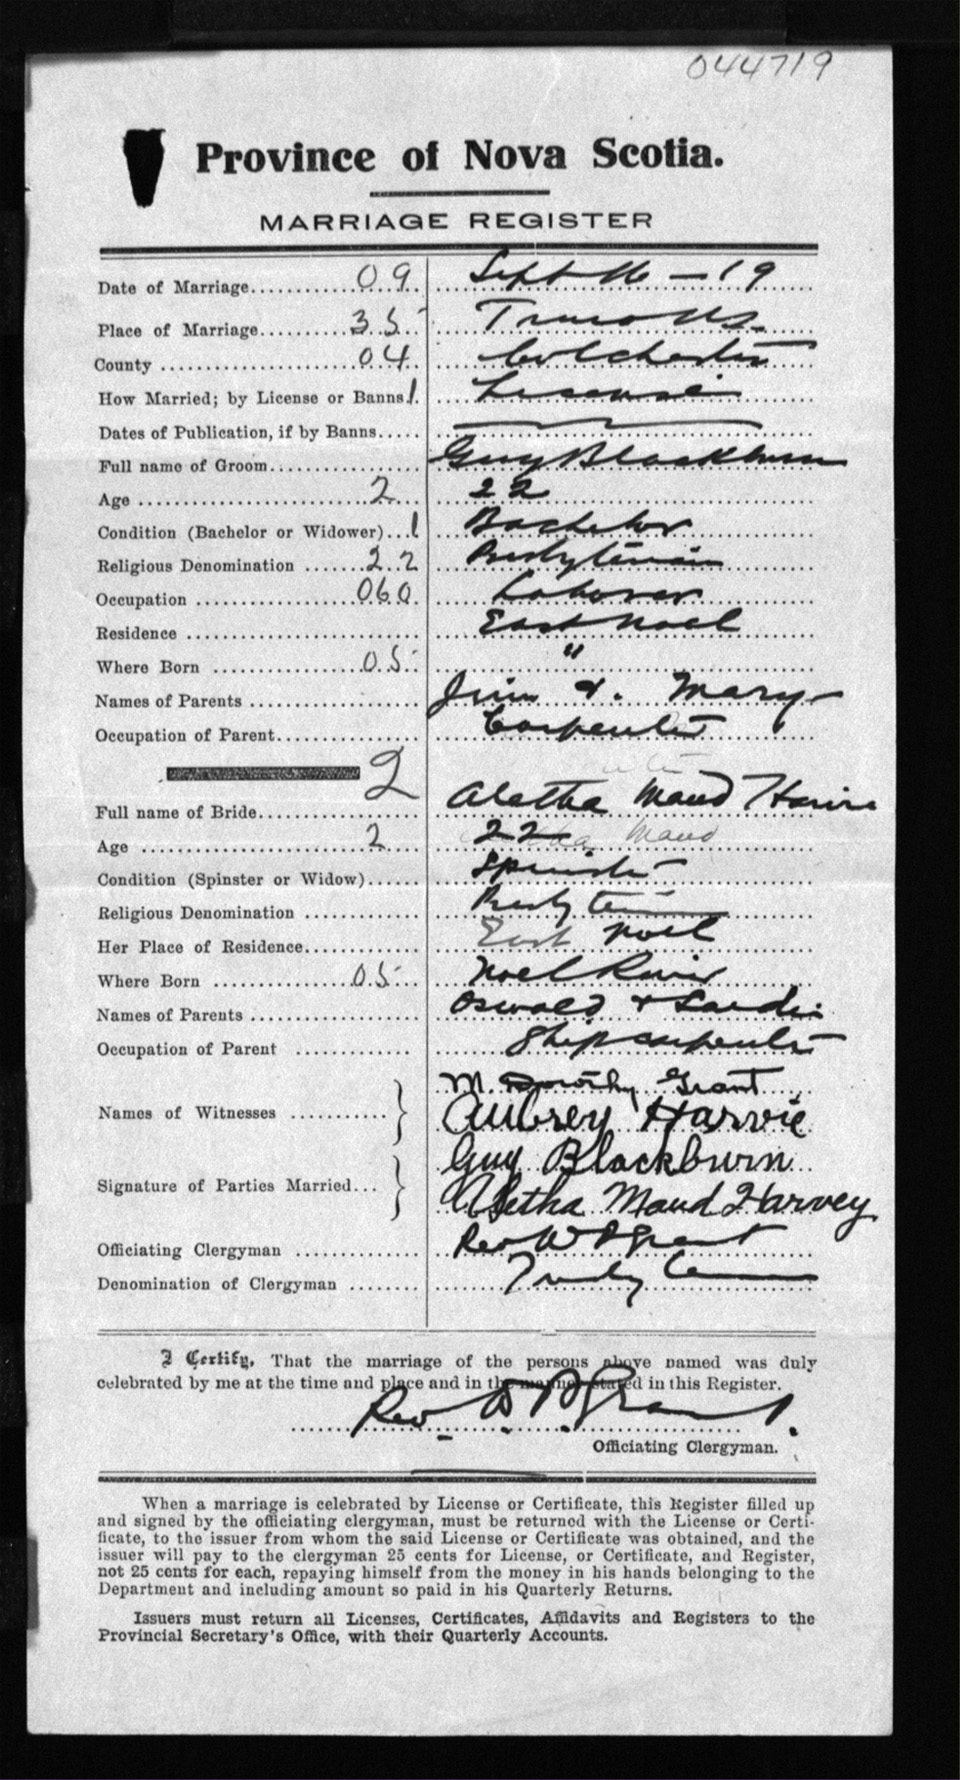 044719
Province of Nova Scotia.
MARRIAGE REGISTER
Date of Marriage............09. Sept 16 - 19
Place of Marriage..........35. Truro NS.
County ....................04. Colchester
How Married; by License or Banns.1. License
Dates of Publication, if by Banns.....
Full name of Groom................ Guy Blackburn
Age ......................2... 22
Condition (Bachelor or Widower)...1 Bachelor
Religious Denomination ......22 Presbyterian
Occupation ................060. Laborer
Residence ........................ East Noel
Where Born ................05. "
Names of Parents .................. Jim & Mary
Occupation of Parent................ Carpenter
2
Full name of Bride................. Aletha Maud
Age .......................2.... 22 Maud
Condition (Spinster or Widow)...... Spinster
Religious Denomination ............ Presbyterian
Her Place of Residence............. East Noel
Where Born ...............05... Noel River
Names of Parents .................. Oswald &
Occupation of Parent ............. Ship carpenter
Names of Witnesses ........... } M. Dorothy Grant
Aubrey Harvie
Signature of Parties Married... } Guy Blackburn
Aletha Maud Harvey
Officiating Clergyman ............. Rev W P Grant
Denomination of Clergyman ........
I Certify, That the marriage of the persons above named was duly
celebrated by me at the time and place and in the manner stated in this Register.
Rev. W. P. Grant.
Officiating Clergyman.
When a marriage is celebrated by License or Certificate, this Register filled up
and signed by the officiating clergyman, must be returned with the License or Certi-
ficate, to the issuer from whom the said License or Certificate was obtained, and the
issuer will pay to the clergyman 25 cents for License, or Certificate, and Register,
not 25 cents for each, repaying himself from the money in his hands belonging to the
Department and including amount so paid in his Quarterly Returns.
Issuers must return all Licenses, Certificates, Affidavits and Registers to the
Provincial Secretary's Office, with their Quarterly Accounts.